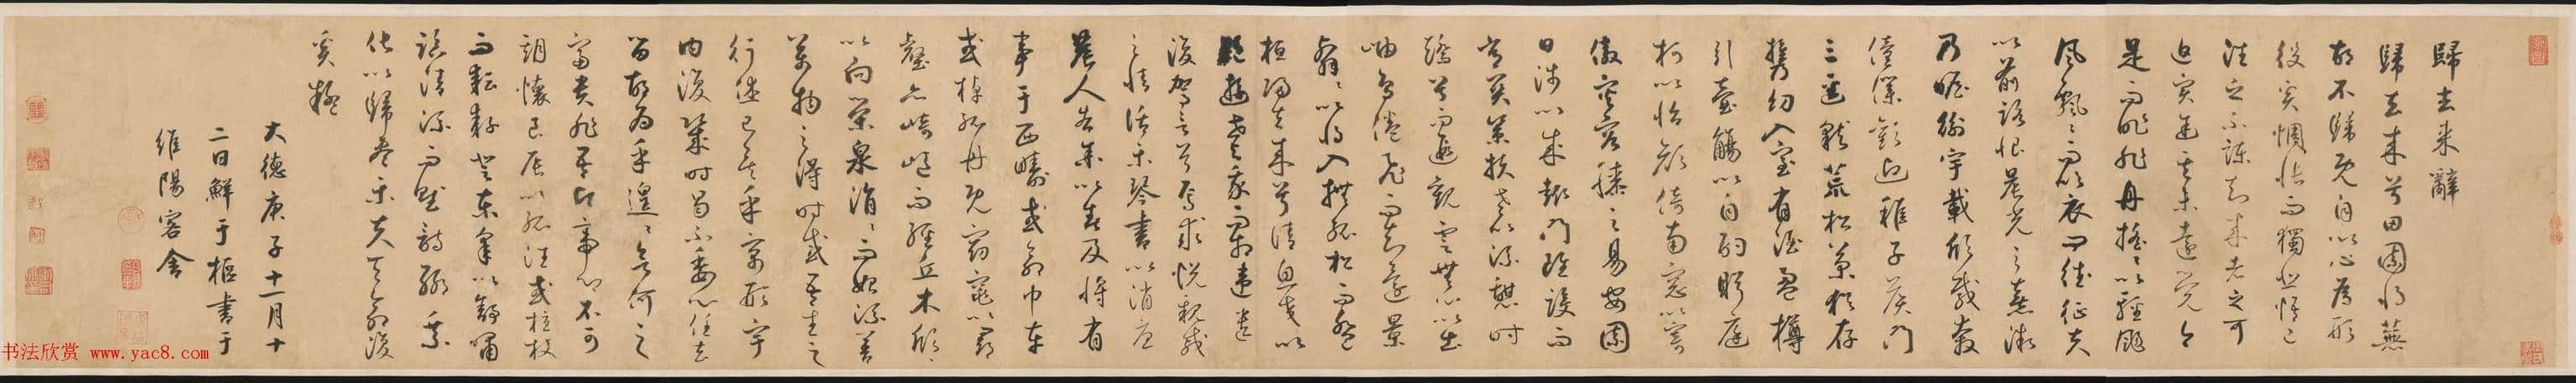 歸去來辭
歸去來兮田園將蕪
胡不歸既自以心為形
役奚惆悵而獨悲悟已
往之不諫知來者之可
追寔迷途其未遠覺今
是而昨非舟搖搖以輕颺
風飄飄而吹衣問征夫
以前路恨晨光之熹微
乃瞻衡宇載欣載奔
僮僕歡迎稚子候門
三逕就荒松菊猶存
攜幼入室有酒盈樽
引壺觴以自酌眄庭
柯以怡顏倚南窗以寄
傲審容膝之易安園
日涉以成趣門雖設而
常關策扶老以流憩時
矯首而遐觀雲無心以出
岫鳥倦飛而知還景
翳翳以將入撫孤松而盤
桓歸去來兮請息交以
絕遊世與我而相違
復駕言兮焉求悅親戚
之情話樂琴書以消憂
農人告余以春及將有
事于西疇或命巾車
或棹孤舟既窈窕以尋
壑亦崎嶇而經丘木欣欣
以向榮泉涓涓而始流善
萬物之得時感吾生之
行休已矣乎寓形宇
內復幾時曷不委心任去
留胡為乎遑遑兮何之
富貴非吾願帝鄉不可
期懷良辰以孤往或植杖
而耘耔登東皋以舒嘯
臨清流而賦詩聊乘
化以歸盡樂夫天命復
奚疑
大德庚子十一月十
二日鮮于樞書于
維陽客舍
书法欣赏 www.yac8.com